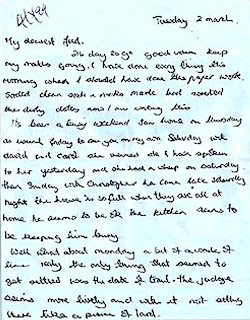 Tuesday 2 march.
My dearest fred.
26 day to go good news keep
my maths going. I have done every thing this
morning when I should have done the paper work
Sorted clean sock's made bed sorted
the dirty clothes now I am writing this
Its been a busy weekend Sam home on thursday
as usual friday to see you my own Saturday with
david and carol she seemed ok I have spoken
to her yesterday and she had a sleep on Saturday
then Sunday with Christopher he come late Saturday
night the house is so full when they are all at
home he seems to be ok the kitchen seems to
be keeping him busy.
Well what about monday a bit of a waste of
time realy the only thing that seemed to
get settled was the date of trial. The judge
seems more lively and with it not sitting
there like a prince of lord.